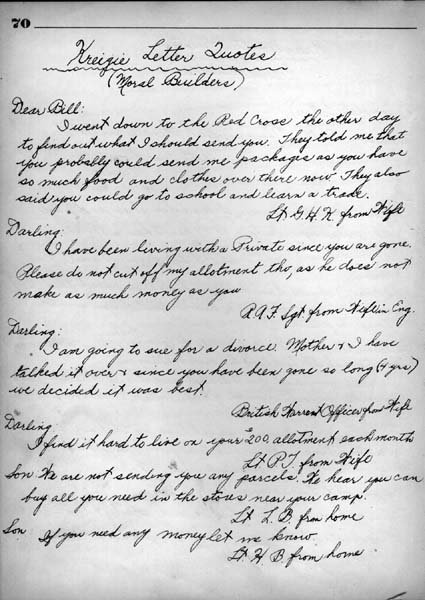 70
Kreigie Letter Quotes
(Moral Builders)
Dear Bill:
I went down to the Red Cross the other day
to find out what I should send you. They told me that
you probably could send me packages as you have
so much food and clothes over there now. They also
said you could go to school and learn a trade.
Lt G. H. K. from Wife
Darling:
I have been living with a Private since you are gone.
Please do not cut off my allotment tho, as he does not
make as much money as you
R.A.F. Sgt from Wife in Eng.
Darling:
I am going to sue for a divorce. Mother & I have
talked it over & since you have been gone so long (4 yrs)
we decided it was best.
British Warrent Officer from Wife
Darling:
I find it hard to live on your $200 allotment each month
Lt P.T. from Wife
Son We are not sending you any parcels. We hear you can
buy all you need in the stores near your camp.
Lt L. B. from home
Son: If you need any money let me know
Lt H. B. from home